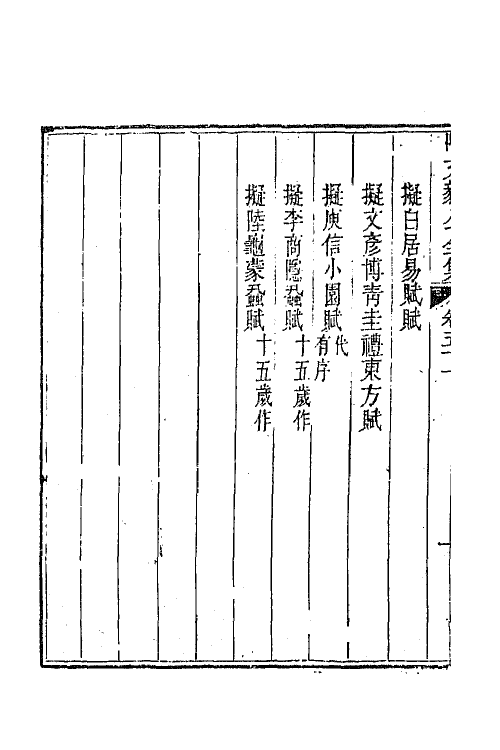 擬白居易賦賦
擬文彥博青圭禮東方賦
擬庾信小園賦代有序
擬李商隱蝨賦十五歲作
擬陸龜蒙蝨賦十五歲作